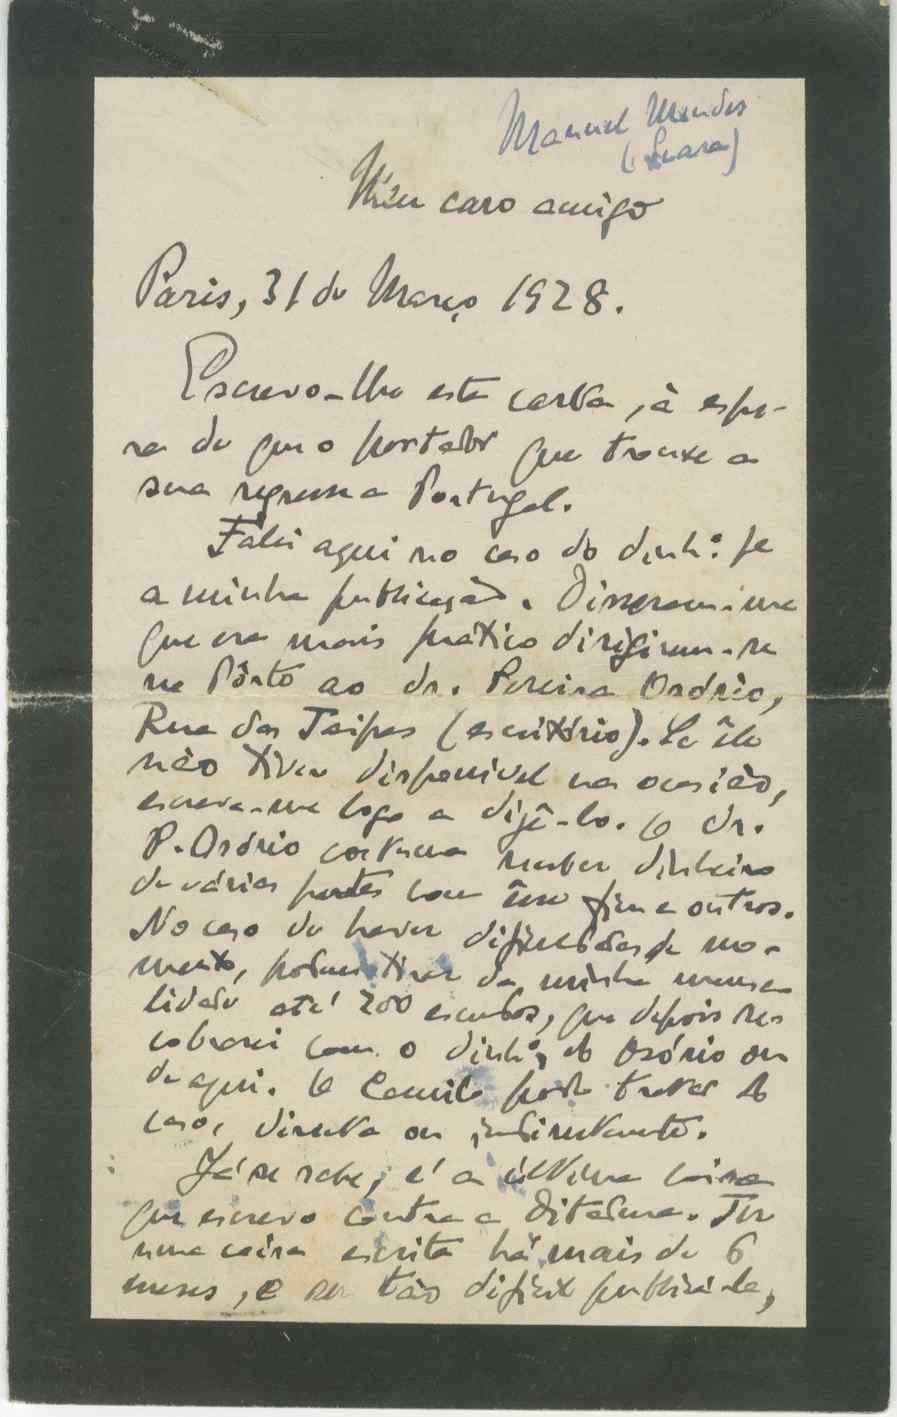 Manuel Mendes
(Seara)
Meu caro amigo
Paris, 31 de Março 1928.
Escrevo-lhe esta carta, à espe-
ra de que o portador que trouxe a
sua regresse a Portugal.
Falei aqui no caso do dinh.º pa
a minha publicação. Disseram-me
que era mais prático dirigirem-se
no Pôrto ao dr. Pereira Osório,
Rua das Taipas (escritório). Se êle
não tiver disponivel na ocasião,
escreva-me logo a dizê-lo. O dr.
P. Osório costuma receber dinheiro
de várias partes com êsse fim e outros.
No caso de haver dificuldades de mo-
mento, podem tirar da minha mensa-
lidade até 200 escudos, que depois res
cobrarei com o dinh.º do Osório ou
daqui. O Camilo pode tratar do
caso, directa ou indirectamente.
Já se sabe, é a última coisa
que escrevo contra a Ditadura. Ter
uma coisa escrita há mais de 6
meses, e ser tão dificil publicá-la,